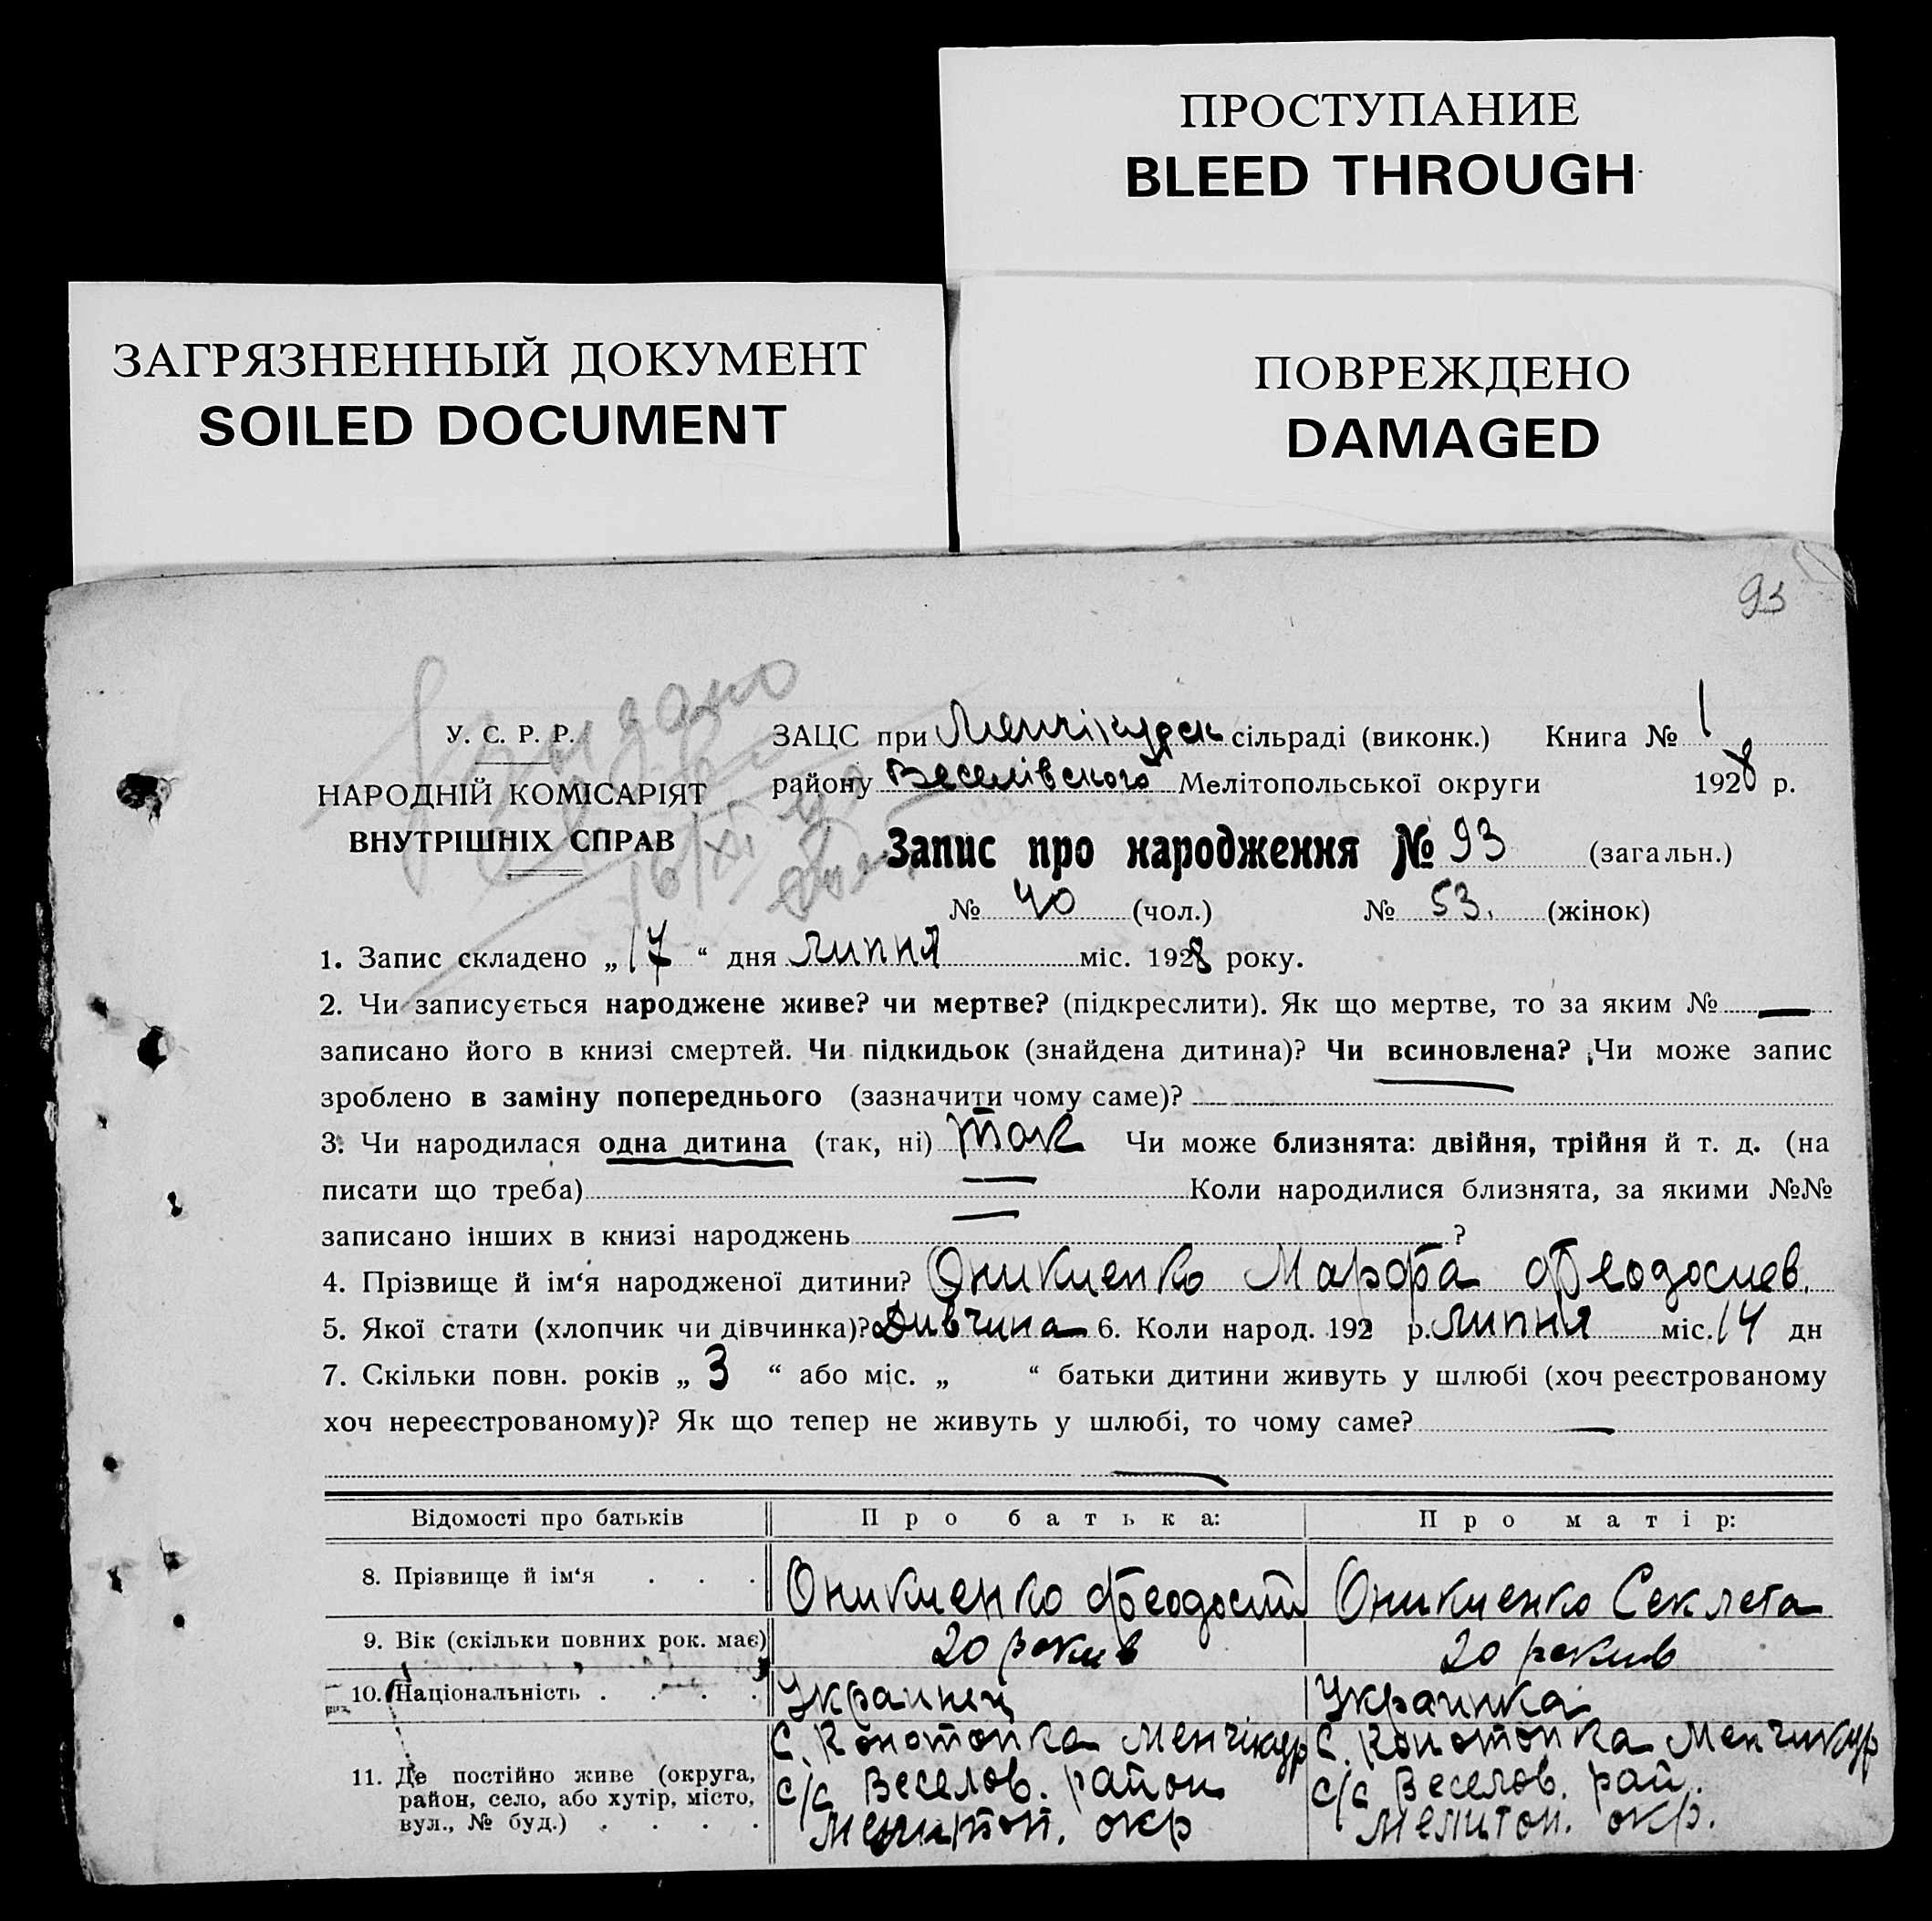 ПРОСТУПАНИЕ
BLEED THROUGH
ЗАГРЯЗНЕННЫЙ ДОКУМЕНТ
SOILED DOCUMENT
ПОВРЕЖДЕНО
DAMAGED
93
У. С. Р. Р.
НАРОДНІЙ КОМІСАРІЯТ
ВНУТРІШНІХ СПРАВ
видано
16/XI
ЗАЦС при Менчікурск сільраді (виконк.) Книга № 1
району Веселівського Мелітопольської округи 1928 р.
Запис про народження № 93 (загальн.)
№ 40 (чол.) № 53. (жінок)
1. Запис складено „17“ дня липня міс. 1928 року.
2. Чи записується народжене живе? чи мертве? (підкреслити). Як що мертве, то за яким № —
записано його в книзі смертей. Чи підкидьок (знайдена дитина)? Чи всиновлена? Чи може запис
зроблено в заміну попереднього (зазначити чому саме)?
3. Чи народилася одна дитина (так, ні) так Чи може близнята: двійня, трійня й т. д. (на
писати що треба) — Коли народилися близнята, за якими №№
записано інших в книзі народжень — ?
4. Прізвище й ім‘я народженої дитини? Оникиенко Марфа Феодосиев.
5. Якої стати (хлопчик чи дівчинка)? Дивчина 6. Коли народ. 192 р. липня міс. 14 дн
7. Скільки повн. років „ 3 “ або міс. „ “ батьки дитини живуть у шлюбі (хоч реєстрованому
хоч нереєстрованому)? Як що тепер не живуть у шлюбі, то чому саме? —
—
Відомості про батьків Про батька: Про матір:
8. Прізвище й ім‘я . . . Оникиенко Феодосий Оникиенко Секлета
9. Вік (скільки повних рок. має) 20 рокив 20 рокив
10. Національність . . . . Украинец Украинка
11. Де постійно живе (округа, С. Конотопка Менчикур С. Конотопка Менчикур
район, село, або хутір, місто, с/с Веселов. район с/с Веселов. рай.
вул., № буд.) . . . . Мелитоп. окр Мелитоп. окр.